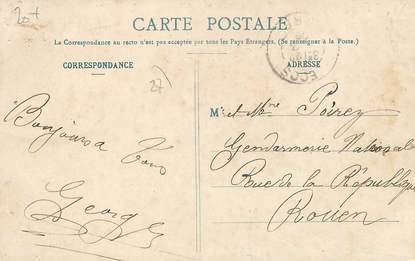 20+
CARTE POSTALE
La Correspondance au recto n'est pas acceptée par tous les Pays Etrangers. (Se renseigner à la Poste.)
CORRESPONDANCE
ADRESSE
ECOS
27
Bonjours à Tous
George
M et Mme Poirez
Gendarmerie Nationale
Rue de la République
Rouen